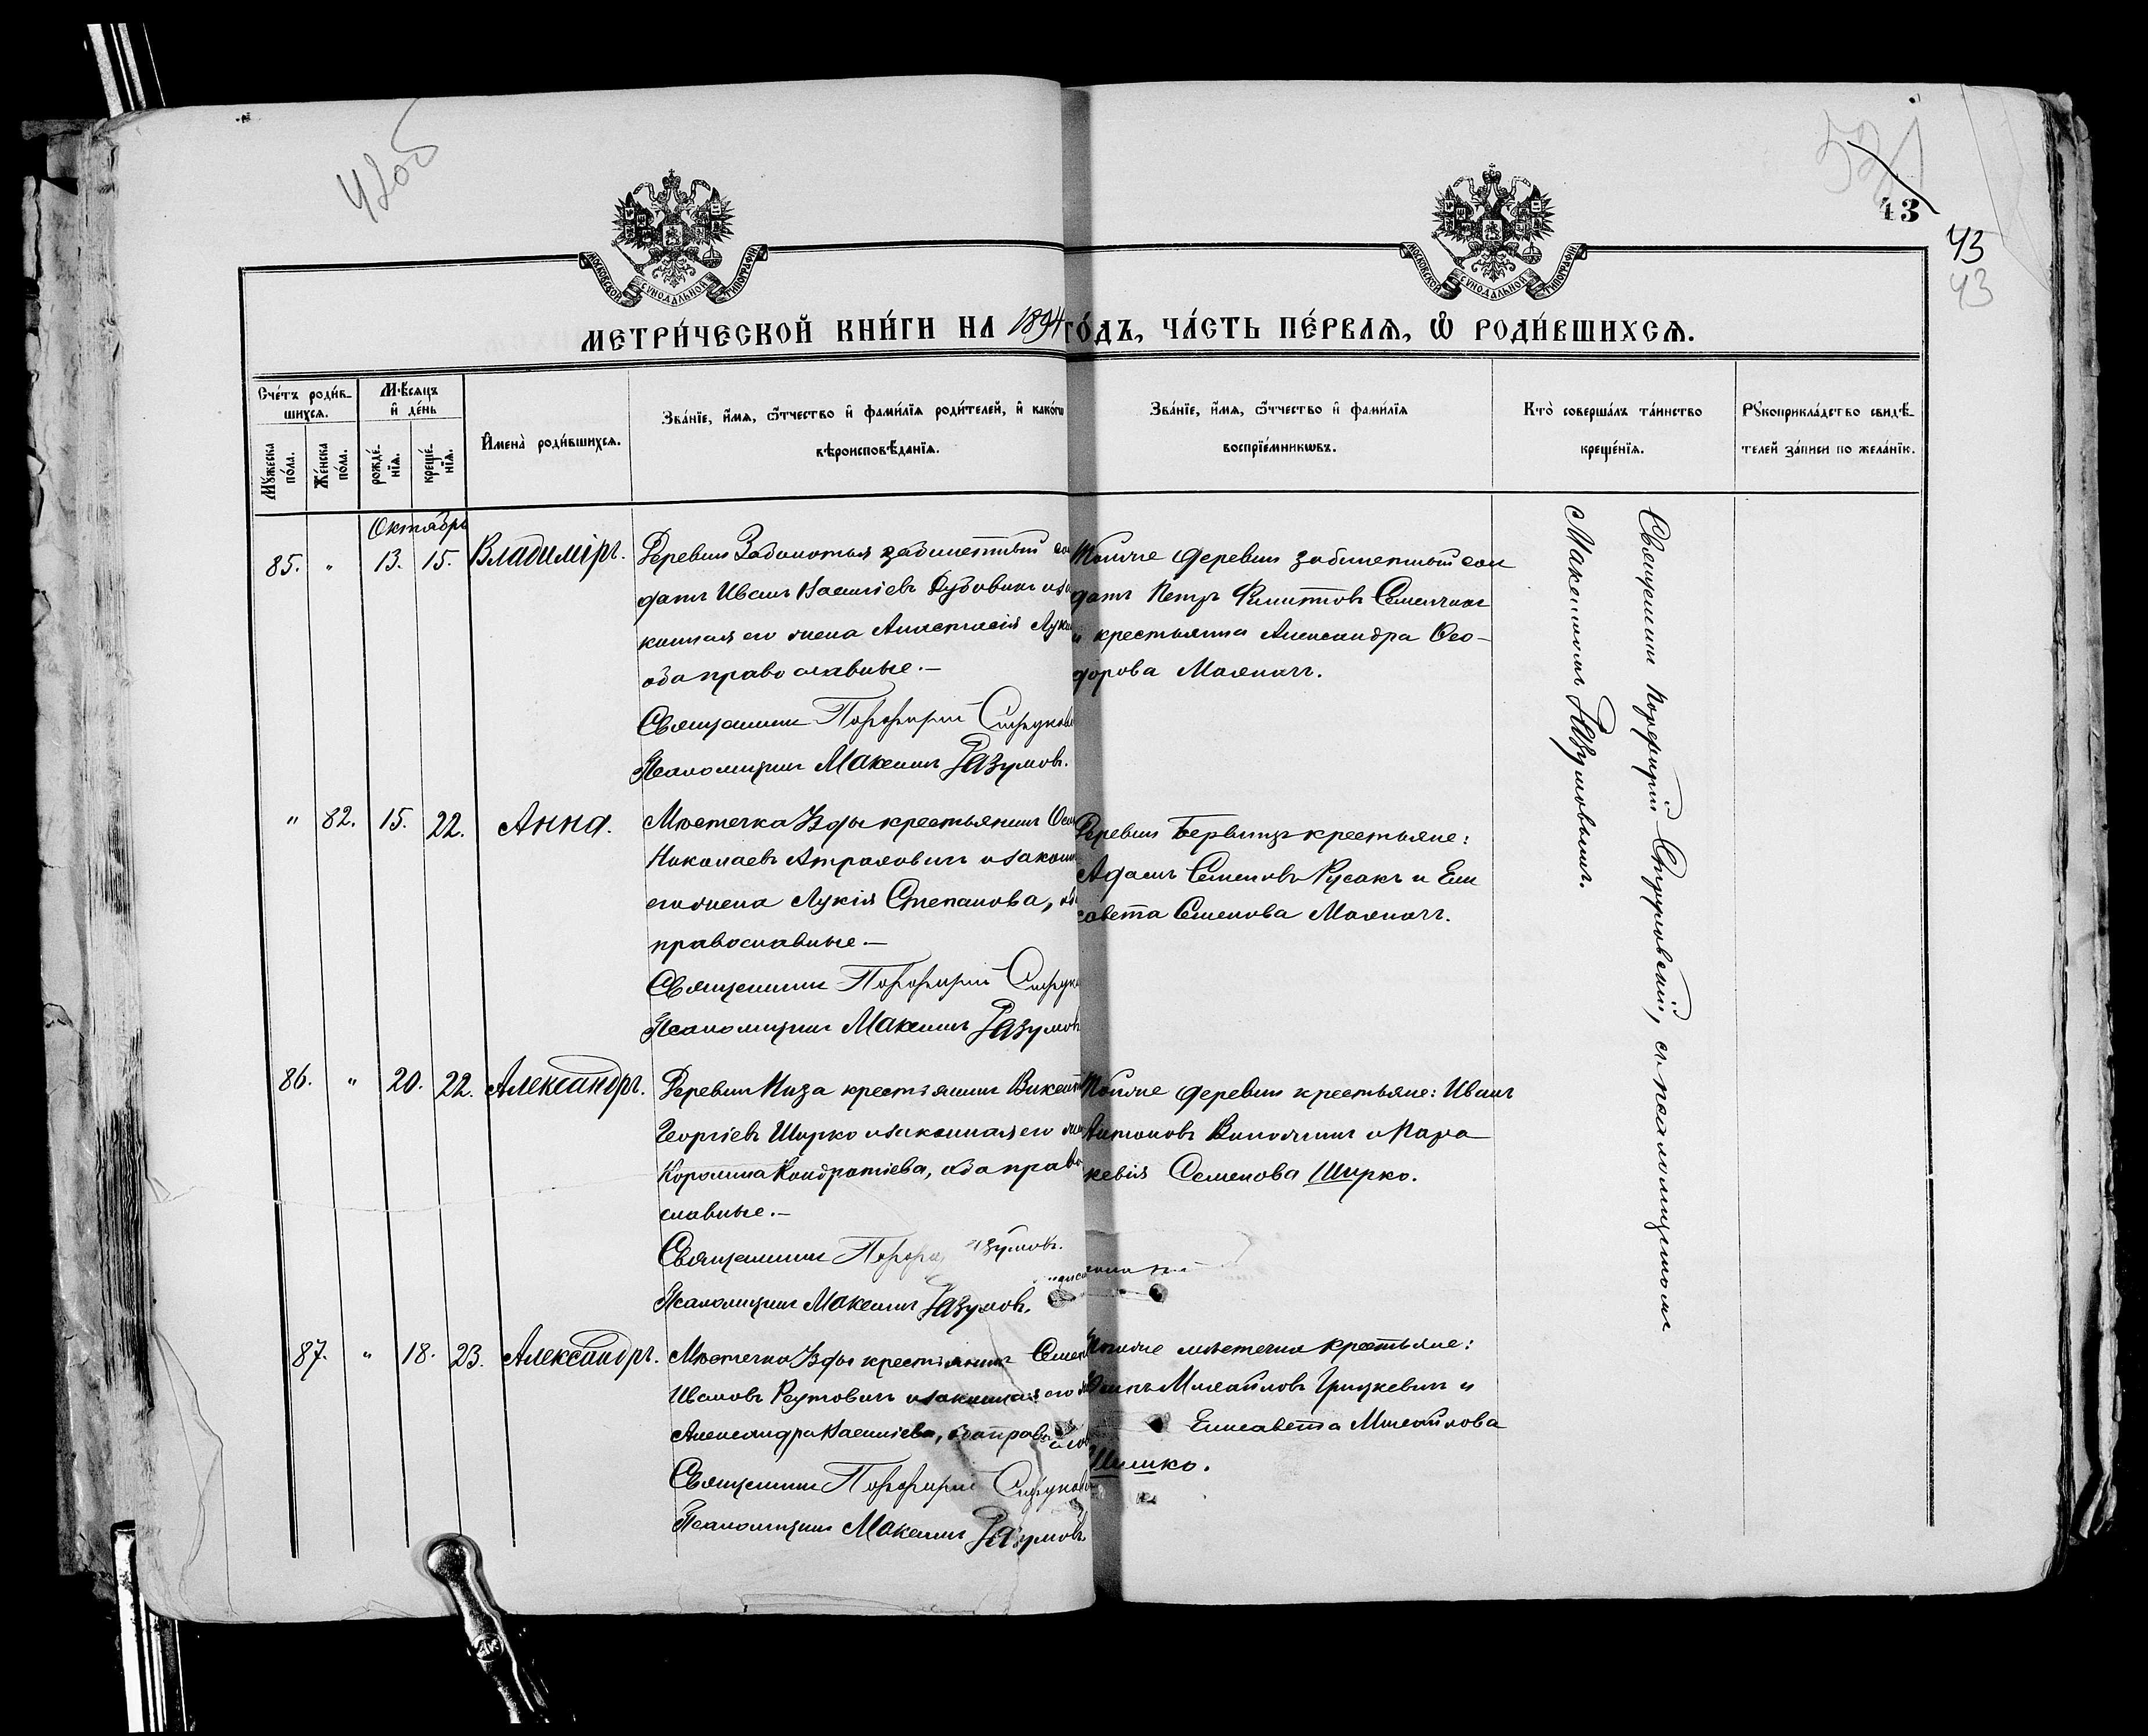 42об
43
43
43
МОСКОВСКОЙ СѴНОДАЛЬНОЙ ТИПОГРАФІИ
МОСКОВСКОЙ СѴНОДАЛЬНОЙ ТИПОГРАФІИ
МЕТРИ́ЧЕСКОЙ КНИ́ГИ НА 1894 ГО́ДЪ, ЧА́СТЬ ПЕ́РВАѦ, Ѡ РОДИ́ВШИХСѦ.
Сче́тъ роди́в-
шихсѧ.
Мꙋжеска
по́ла.
Же́нска
по́ла.
Мѣ́сѧцъ
и҆ де́нь
рожде́-
нїѧ.
креще́-
нїѧ.
И҆мена̀ роди́вшихсѧ.
Зва́нїе, и҆́мѧ, ѻ҆́тчество и҆ фами́лїѧ роди́телей, и҆ како́гѡ
вѣроисповѣ́данїѧ.
Зва́нїе, и҆́мѧ, ѻ҆́тчество и҆ фами́лїѧ
воспрїе́мникѡвъ.
Кто̀ соверша́лъ та́инство
креще́нїѧ.
Рꙋкоприкла́дство свидѣ́-
телей за́писи по жела́нїю.
Октябрь
85. " 13. 15. Владиміръ.
Деревни Заболотья забилетный сол
датъ Иванъ Васильевъ Дубовикъ и за
конная его жена Анастасія Луки
оба православные.—
Священникъ Порфирій Струков
Псаломщикъ Максимъ Разумовъ.
Тойже деревни забилетный сол
датъ Петръ Филиповъ Семенчик
и крестьянка Александра Ѳео-
дорова Малянчъ.
Священникъ Порфирій Струковскій, съ псаломщикомъ
Максимомъ Разумовымъ.
" 82. 15. 22. Анна.
Мѣстечка Узды крестьянинъ
Николаевъ Атрахович и закон
его жена Лукія Степанова, оба
православные.—
Священникъ Порфирій Струк
Псаломщикъ Максимъ Разумов
Деревни крестьяне:
Адамъ Семеновъ Русакъ и Ели
савета Семенова Малянчъ.
86. " 20. 22. Александръ.
Деревни Низа крестьянинъ Викент
Георгіевъ Ширко и законная его жен
Кондратіева, оба право
славные.—
Священникъ
Псаломщикъ Максимъ Разумовъ.
Тойже деревни крестьяне: Иванъ
Антоновъ и Пара
кевія Семенова Ширко.
87. " 18. 23. Александръ.
Мѣстечка Узды крестьянинъ Семен
Ивановъ Реутович и законная его
Александра Васильева, оба правосла
Священникъ Порфирій Струков
Псаломщикъ Максимъ Разумовъ.
Тогоже мѣстечка крестьяне:
Михайловъ Грицкевич и
Елисавета Михайлова
Шишко.